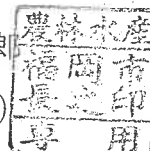 農林水産
福岡市
長之印
専用